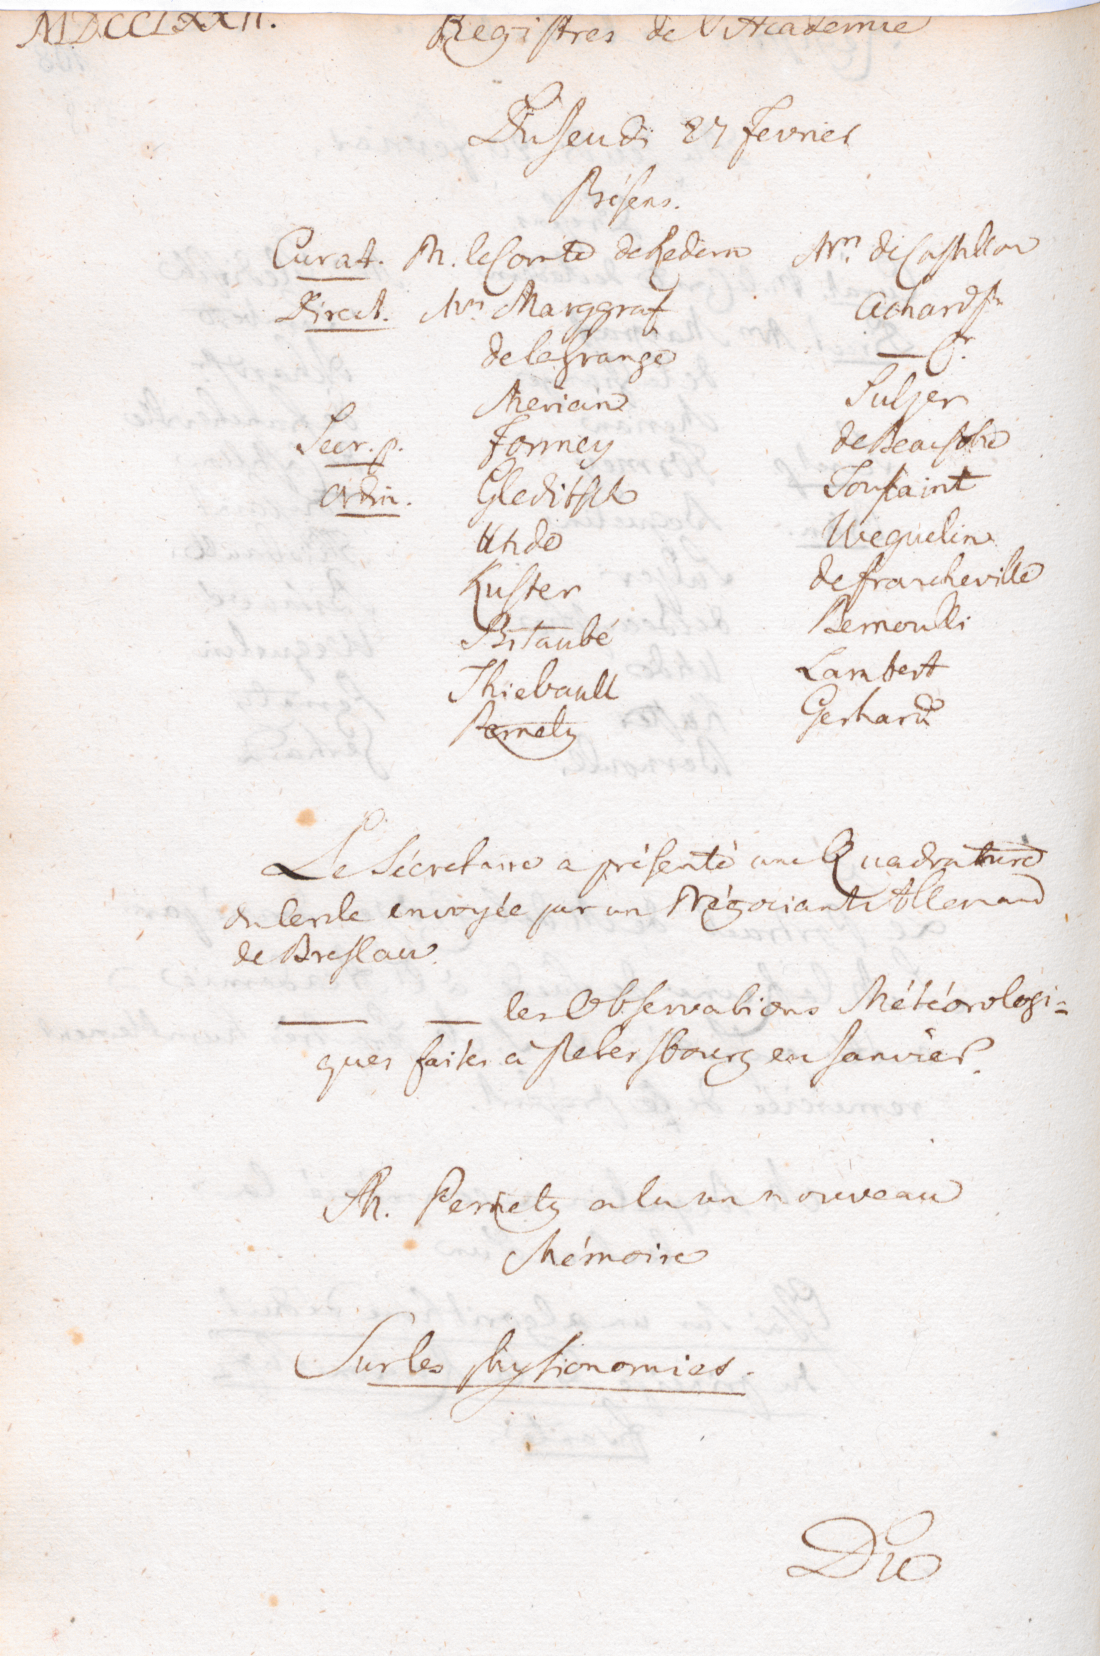 MDCCLXXII. Registres de l'Academie
Du Jeudi 27 Fevrier
Présens.
Curat. M. le Comte de Redern Mrs de Castillon
Direct. Mrs Marggraf Achard Sr
de la Grange — Jr.
Merian Sulzer
Secr. p. Formey de Beausobre
Ordin. Gleditsch Toussaint
Uhde Weguelin
Kuster de Francheville
Bitaubé Bernoulli
Thiebault Lambert
Pernety Gerhard
Le Sécretaire a présenté une Quadrature
du Cercle envoyée par un Négociant Allemand
de Breslau.
— — les Observations Météorologi=
ques faites à Petersbourg en Janvier.
M. Pernety a lu un nouveau
Mémoire
Sur les physionomies.
Du